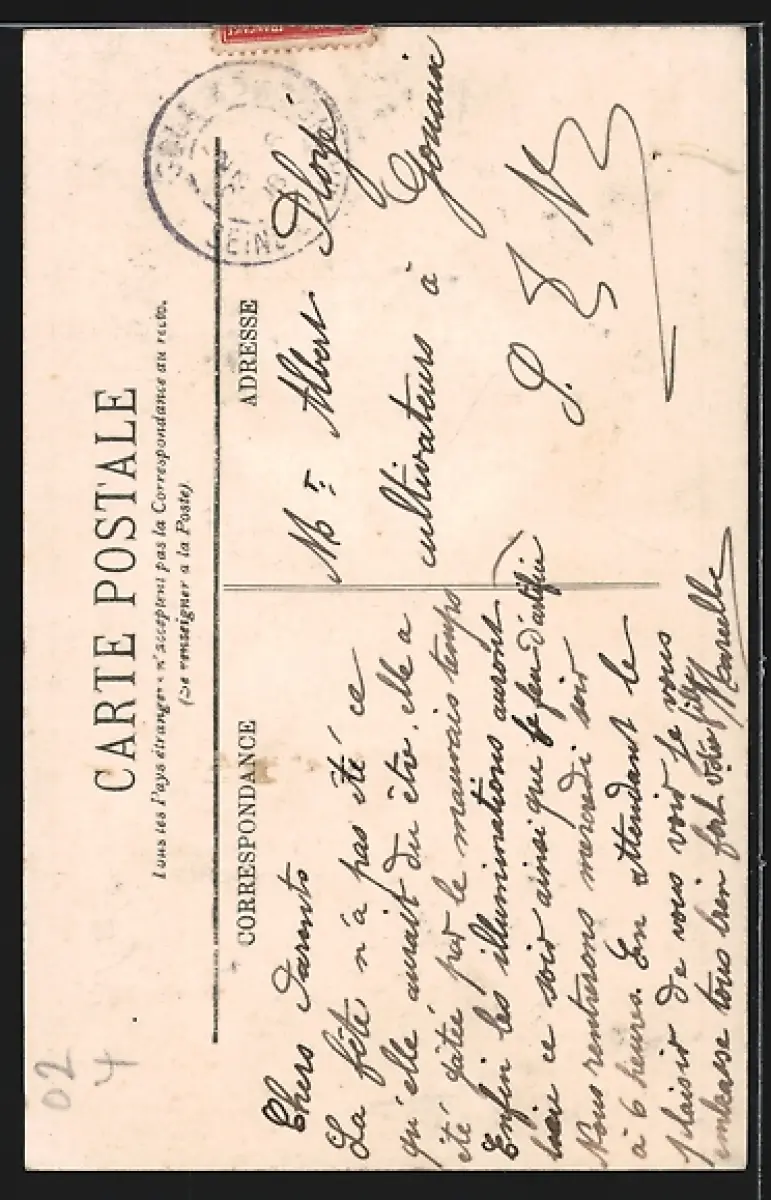 CARTE POSTALE
Tous les Pays étrangers n'acceptent pas la Correspondance au recto.
(Se renseigner à la Poste).
CORRESPONDANCE
Chers Parents
La fête n'a pas été ce
qu'elle aurait du être, elle a
été gâtée par le mauvais temps
Enfin les illuminations auront
lieu ce soir ainsi que le feu d'artifice
Nous rentrerons mercredi soir
à 6 heures. En attendant le
plaisir de vous voir je vous
embrasse tous bien fort votre fille
Marcelle
ADRESSE
Mr Albert Ployé
cultivateurs à Gouaix
S. & M
SEINE
02
4